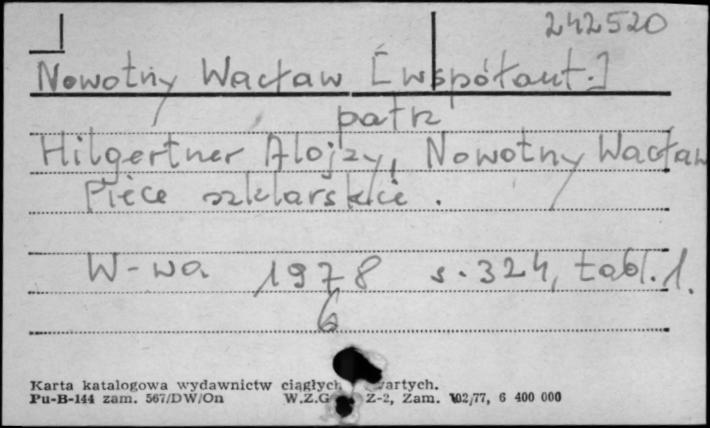 242520
Nowotny Wacław [współaut.]
patrz
Hilgertner Alojzy, Nowotny Wacław
Piece szklarskie.
W-wa 1978 s. 324, tabl. 1.
6
Karta katalogowa wydawnictw ciągłych
Pu-B-144 zam. 567/DW/On W.Z.G Z-2, Zam. 102/77, 6 400 000